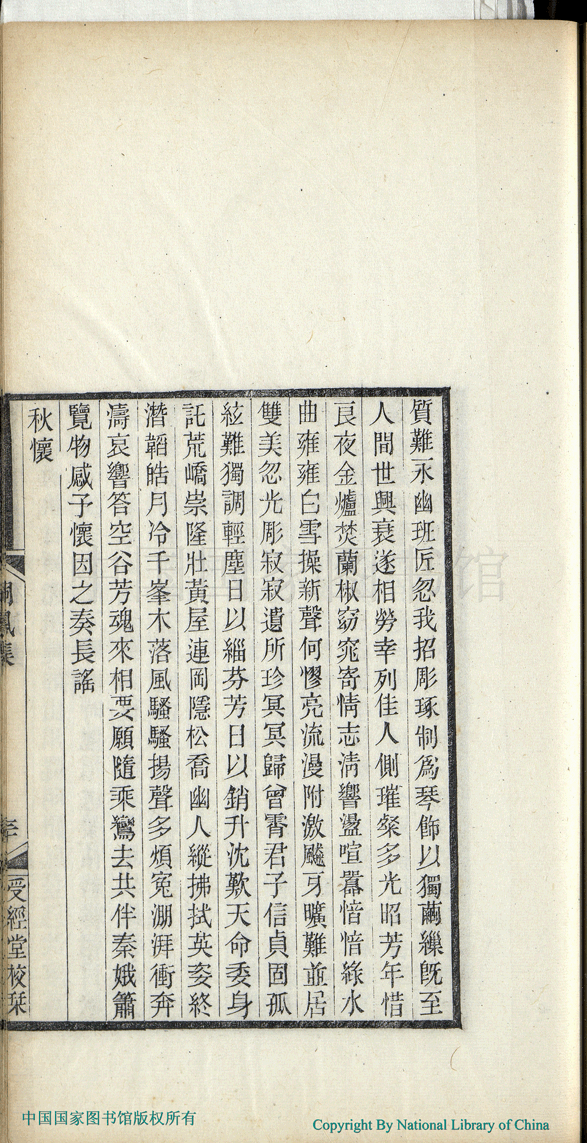 質難永幽班匠忽我招彫琢制爲琴飾以獨繭繅旣至
人間世興衰遂相勞幸列佳人側璀粲多光昭芳年惜
良夜金爐焚蘭椒窈窕寄情志淸響盪喧囂愔愔綠水
曲雍雍白雪操新聲何憀亮流漫附激飈身曠難並居
雙美忽光彫寂寂遺所珍冥冥歸曾霄君子信貞固孤
絃難獨調輕塵日以緇芬芳日以銷升沈歎天命委身
託荒嶠崇隆壯黃屋連岡隱松喬幽人縱拂拭英姿終
潛韜皓月冷千峯木落風騷騷揚聲多煩寃淜湃衝奔
濤哀響答空谷芳魂來相要願隨乘鸞去共伴秦娥簫
覽物感予懷因之奏長謠
秋懷
受經堂校栞
中国国家图书馆版权所有
Copyright By National Library of China